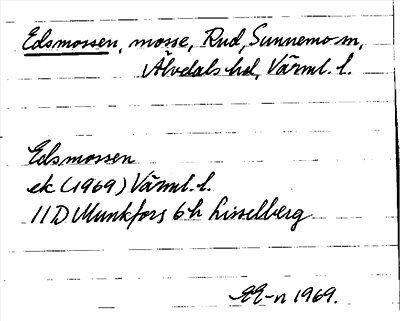 Edsmossen, mosse, Rud, Sunnemo sn,
Älvdals hd, Värml. l.
Edsmossen
ek (1969) Värml. l.
11D Munkfors 6h Lisselberg
EE-n 1969.